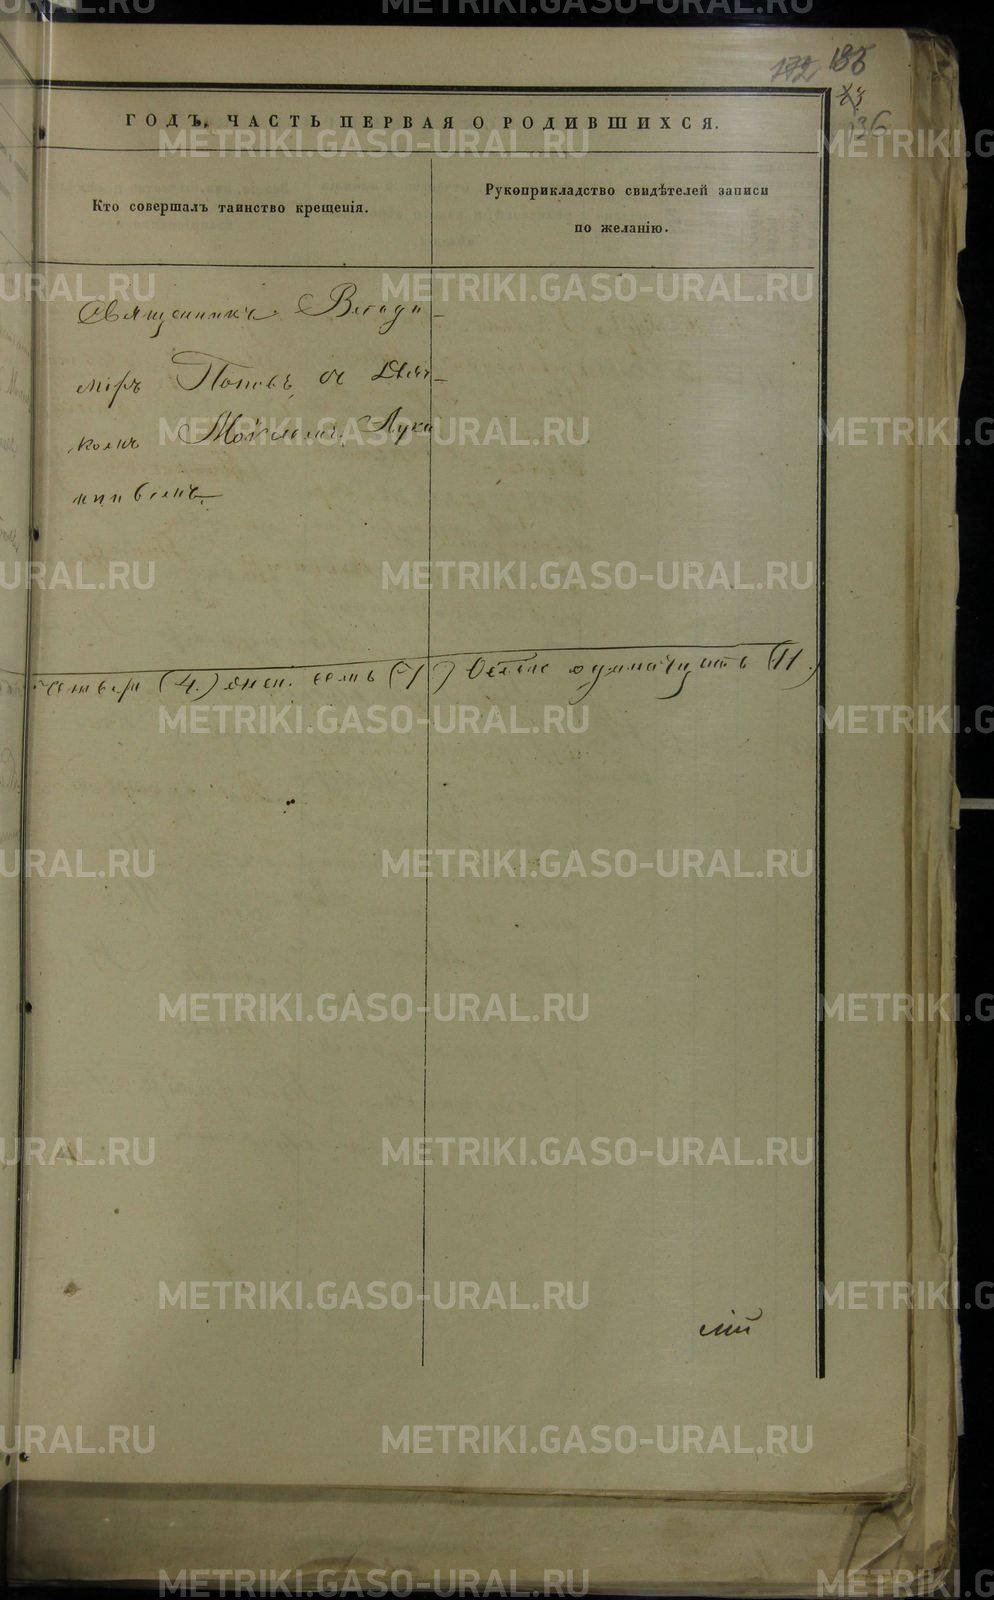 172 135
136
ГОДЪ, ЧАСТЬ ПЕРВАЯ О РОДИВШИХСЯ.
Кто совершалъ таинство крещенія.
Рукоприкладство свидѣтелей записи
по желанію.
Священникъ Влади-
міръ Поповъ, съ Дьяч-
комъ Лука
нинымъ.
четыре (4.) жен. семь (7) Обоего одиннадцать (11.)
METRIKI.GASO-URAL.RU